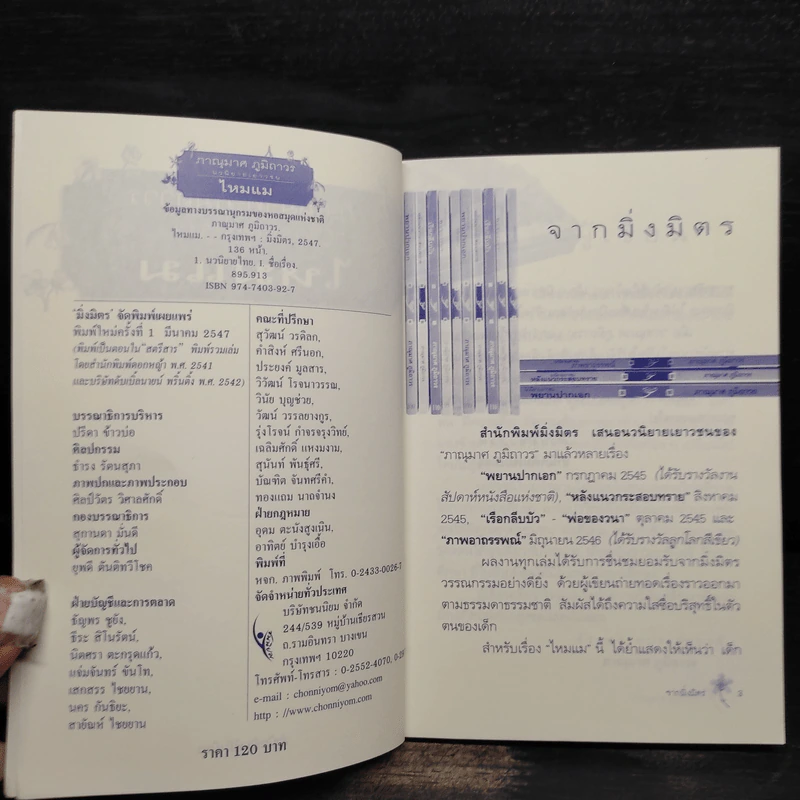 ภาณุมาศ ภูมิถาวร
ไหมแม
ข้อมูลทางบรรณานุกรมของหอสมุดแห่งชาติ
ภาณุมาศ ภูมิถาวร.
ไหมแม. - - กรุงเทพฯ : มิ่งมิตร, 2547.
136 หน้า.
1. นวนิยายไทย. I. ชื่อเรื่อง.
895.913
ISBN 974-7403-92-7
'มิ่งมิตร' จัดพิมพ์เผยแพร่
พิมพ์ใหม่ครั้งที่ 1 มีนาคม 2547
(พิมพ์เป็นตอนใน "สตรีสาร" พิมพ์รวมเล่ม
โดยสำนักพิมพ์ดอกหญ้า พ.ศ. 2541
และบริษัทดับเบิ้ลนายน์ พริ้นติ้ง พ.ศ. 2542)
บรรณาธิการบริหาร
ปรีดา ข้าวบ่อ
ศิลปกรรม
ธำรง รัตนสุภา
ภาพปกและภาพประกอบ
ศิลป์วัตร วิศาลศักดิ์
กองบรรณาธิการ
สุกานดา มั่นดี
ผู้จัดการทั่วไป
ยุพดี ตันติทวีโชค
ฝ่ายบัญชีและการตลาด
ธัญพร ชูยัง,
ธีระ สิโนรัตน์,
นิตศรา ตะกรุดแก้ว,
แจ่มจันทร์ ขันโท,
เสกสรร ไชยยาน,
นคร กันธิยะ,
สายัณห์ ไชยยาน
คณะที่ปรึกษา
สุวัฒน์ วรดิลก,
คำสิงห์ ศรีนอก,
ประยงค์ มูลสาร,
วิวัฒน์ โรจนาวรรณ,
วินัย บุญช่วย,
วัฒน์ วรรลยางกูร,
รุ่งโรจน์ กำจรจรุงวิทย์,
เฉลิมศักดิ์ แหงมงาม,
สุนันท์ พันธุ์ศรี,
บัณฑิต จันทศรีคำ,
ทองแถม นาถจำนง
ฝ่ายกฎหมาย
อุดม ตะนังสูงเนิน,
อาทิตย์ บำรุงเอื้อ
พิมพ์ที่
หจก. ภาพพิมพ์ โทร. 0-2433-0026-7
จัดจำหน่ายทั่วประเทศ
บริษัทชนนิยม จำกัด
244/539 หมู่บ้านเธียรสวน
ถ.รามอินทรา บางเขน
กรุงเทพฯ 10220
โทรศัพท์-โทรสาร : 0-2552-4070,
e-mail : chonniyom@yahoo.com
http : //www.chonniyom.com
ราคา 120 บาท
จากมิ่งมิตร
หลังแนวกระสอบทราย
พยานปากเอก
สำนักพิมพ์มิ่งมิตร เสนอนวนิยายเยาวชนของ
"ภาณุมาศ ภูมิถาวร" มาแล้วหลายเรื่อง
"พยานปากเอก" กรกฎาคม 2545 (ได้รับรางวัลงาน
สัปดาห์หนังสือแห่งชาติ), "หลังแนวกระสอบทราย" สิงหาคม
2545, "เรือกลีบบัว" - "พ่อของวนา" ตุลาคม 2545 และ
"ภาพอาถรรพณ์" มิถุนายน 2546 (ได้รับรางวัลลูกโลกสีเขียว)
ผลงานทุกเล่มได้รับการชื่นชมยอมรับจากมิ่งมิตร
วรรณกรรมอย่างดียิ่ง ด้วยผู้เขียนถ่ายทอดเรื่องราวออกมา
ตามธรรมดาธรรมชาติ สัมผัสได้ถึงความใสซื่อบริสุทธิ์ในตัว
ตนของเด็ก
สำหรับเรื่อง "ไหมแม" นี้ ได้ย้ำแสดงให้เห็นว่า เด็ก
จากมิ่งมิตร